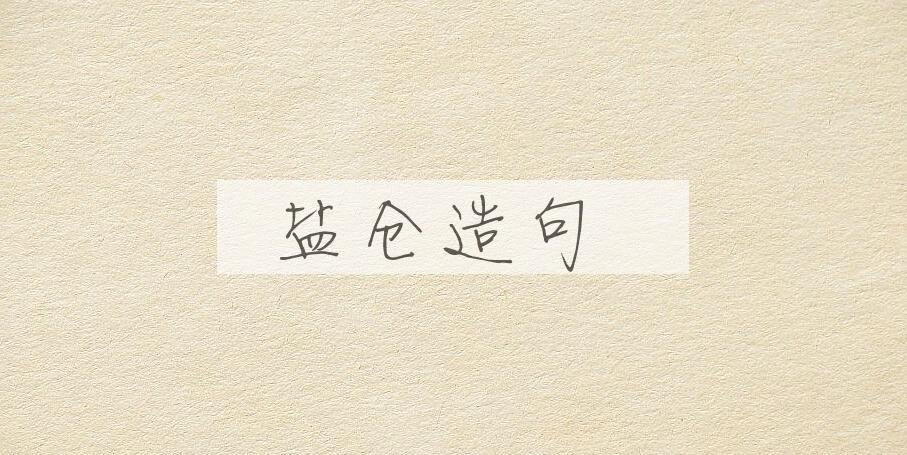 盐仓造句